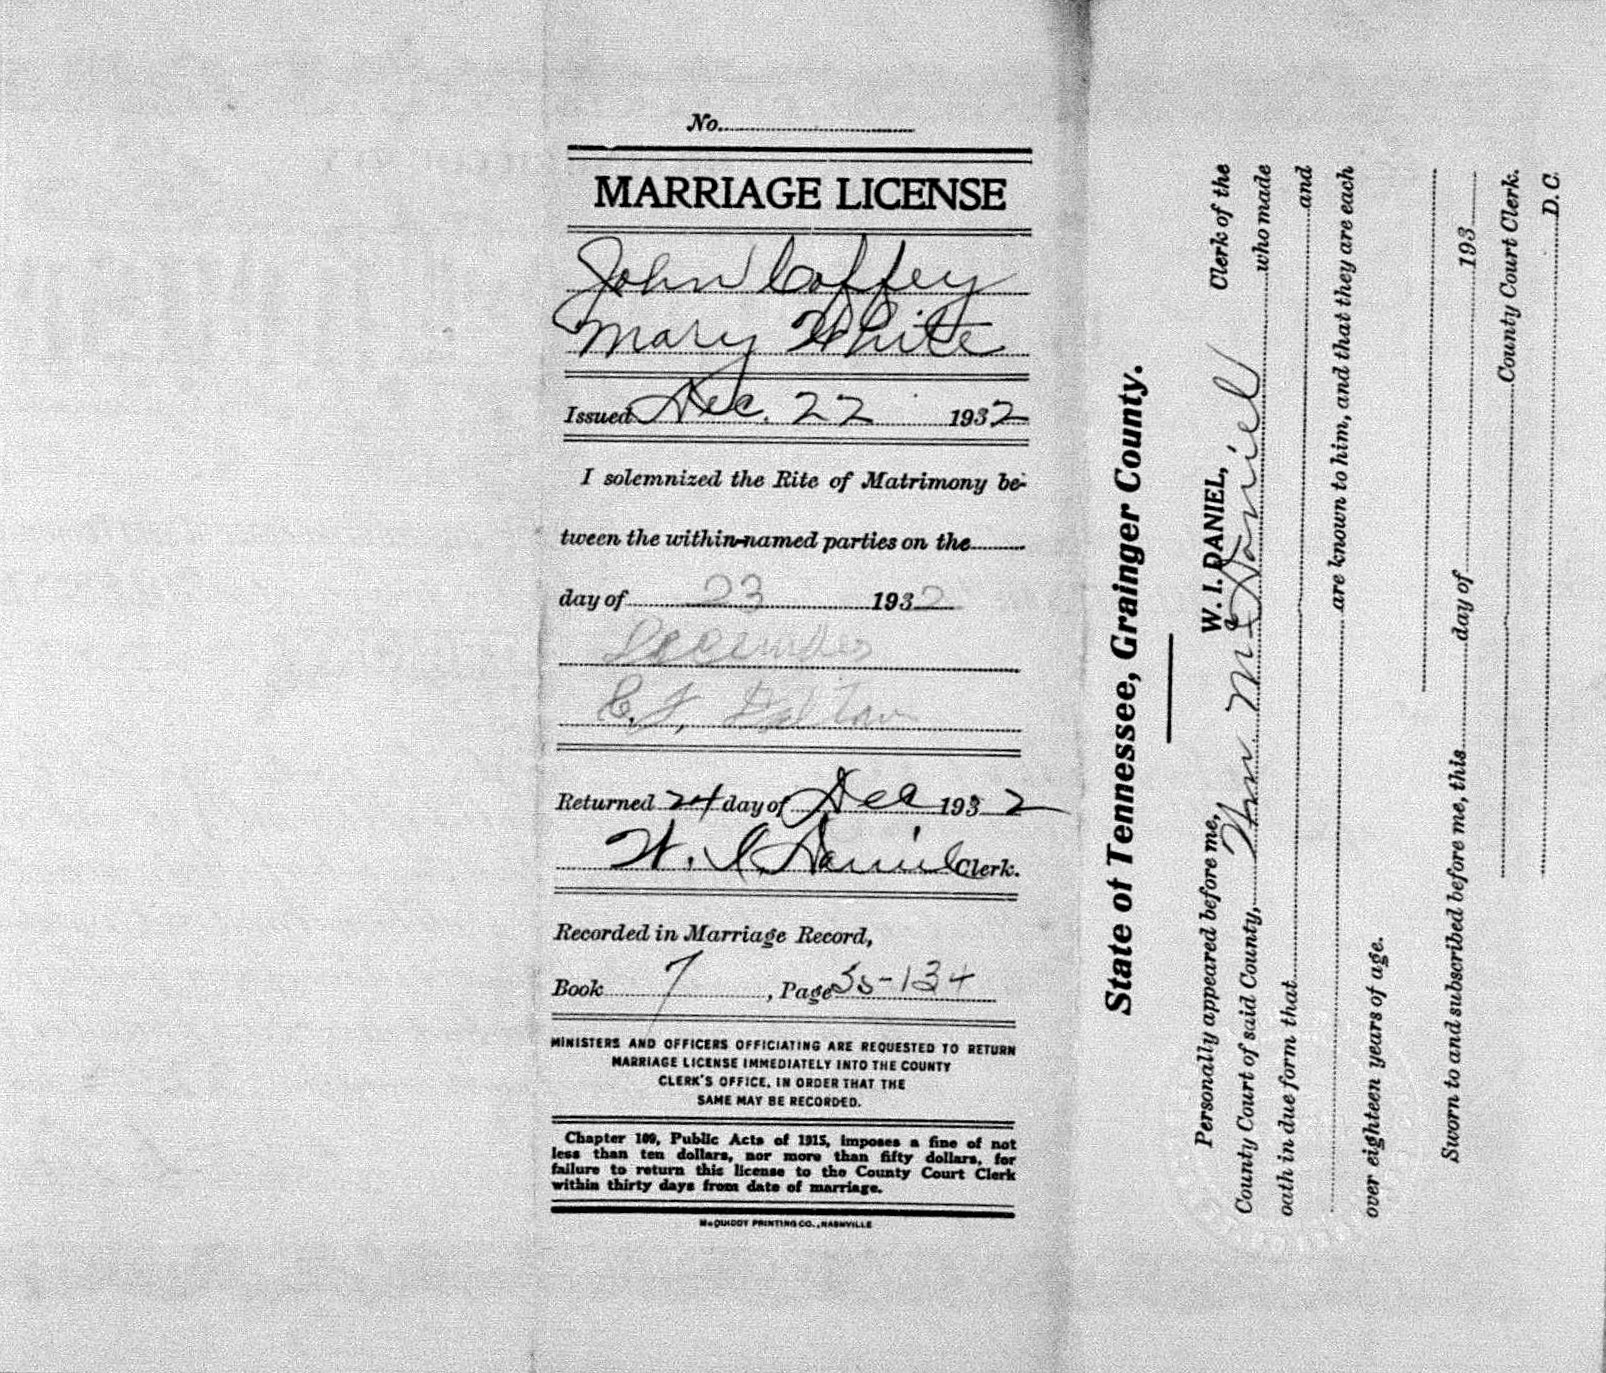 No.
MARRIAGE LICENSE
John Coffey
Mary White
Issued Dec. 22 1932
I solemnized the Rite of Matrimony be-
tween the within-named parties on the
day of 23 1932
December
C. F.
Returned 24 day of Dec 1932
W. I. Daniel Clerk.
Recorded in Marriage Record,
Book 7, Page 35-134
MINISTERS AND OFFICERS OFFICIATING ARE REQUESTED TO RETURN
MARRIAGE LICENSE IMMEDIATELY INTO THE COUNTY
CLERK'S OFFICE, IN ORDER THAT THE
SAME MAY BE RECORDED.
Chapter 109, Public Acts of 1915, imposes a fine of not
less than ten dollars, nor more than fifty dollars, for
failure to return this license to the County Court Clerk
within thirty days from date of marriage.
McQUIDDY PRINTING CO., NASHVILLE
State of Tennessee, Grainger County.
Personally appeared before me, W. I. DANIEL, Clerk of the
County Court of said County, Daniel who made
oath in due form that and
are known to him, and that they are each
over eighteen years of age.
Sworn to and subscribed before me, this day of 193
County Court Clerk.
D. C.